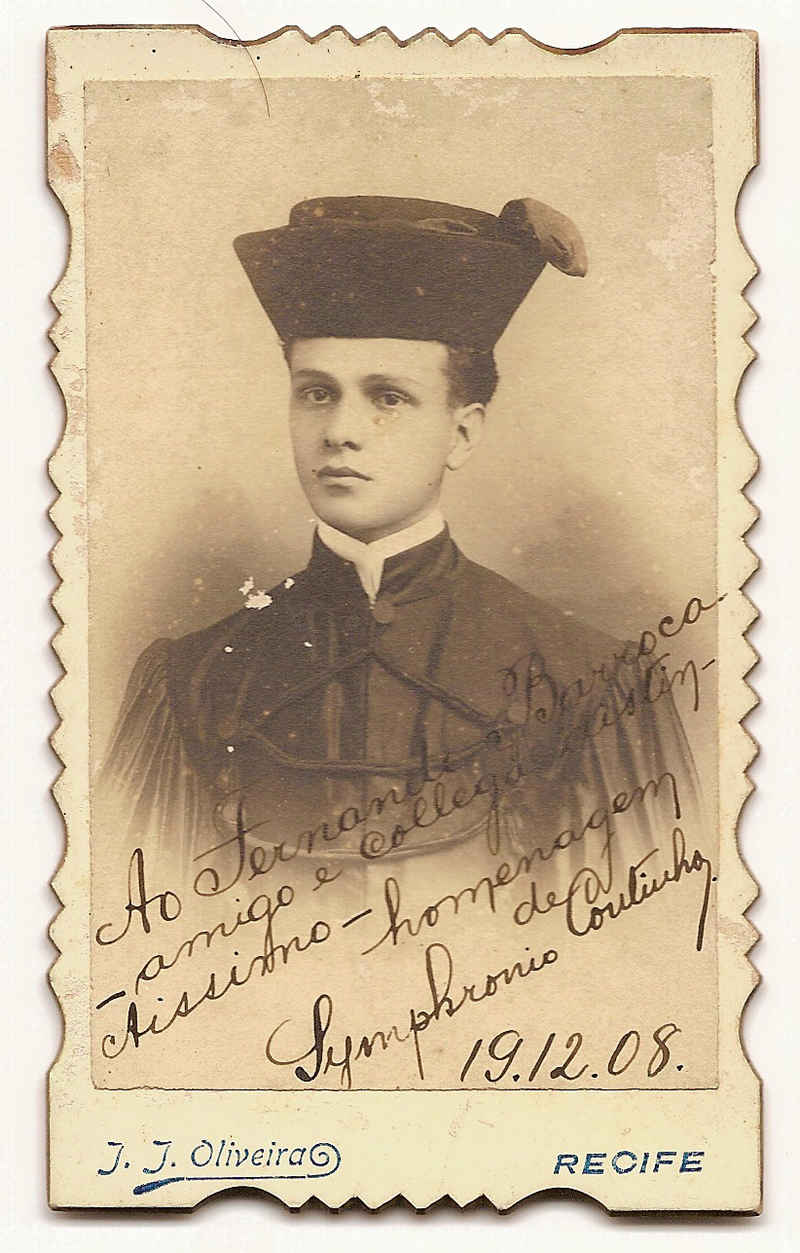 Ao Fernando Barroca -
- amigo e collega distin-
ctissimo - homenagem
de Coutinho,
Symphronio
19.12.08.
J. J. Oliveira
RECIFE